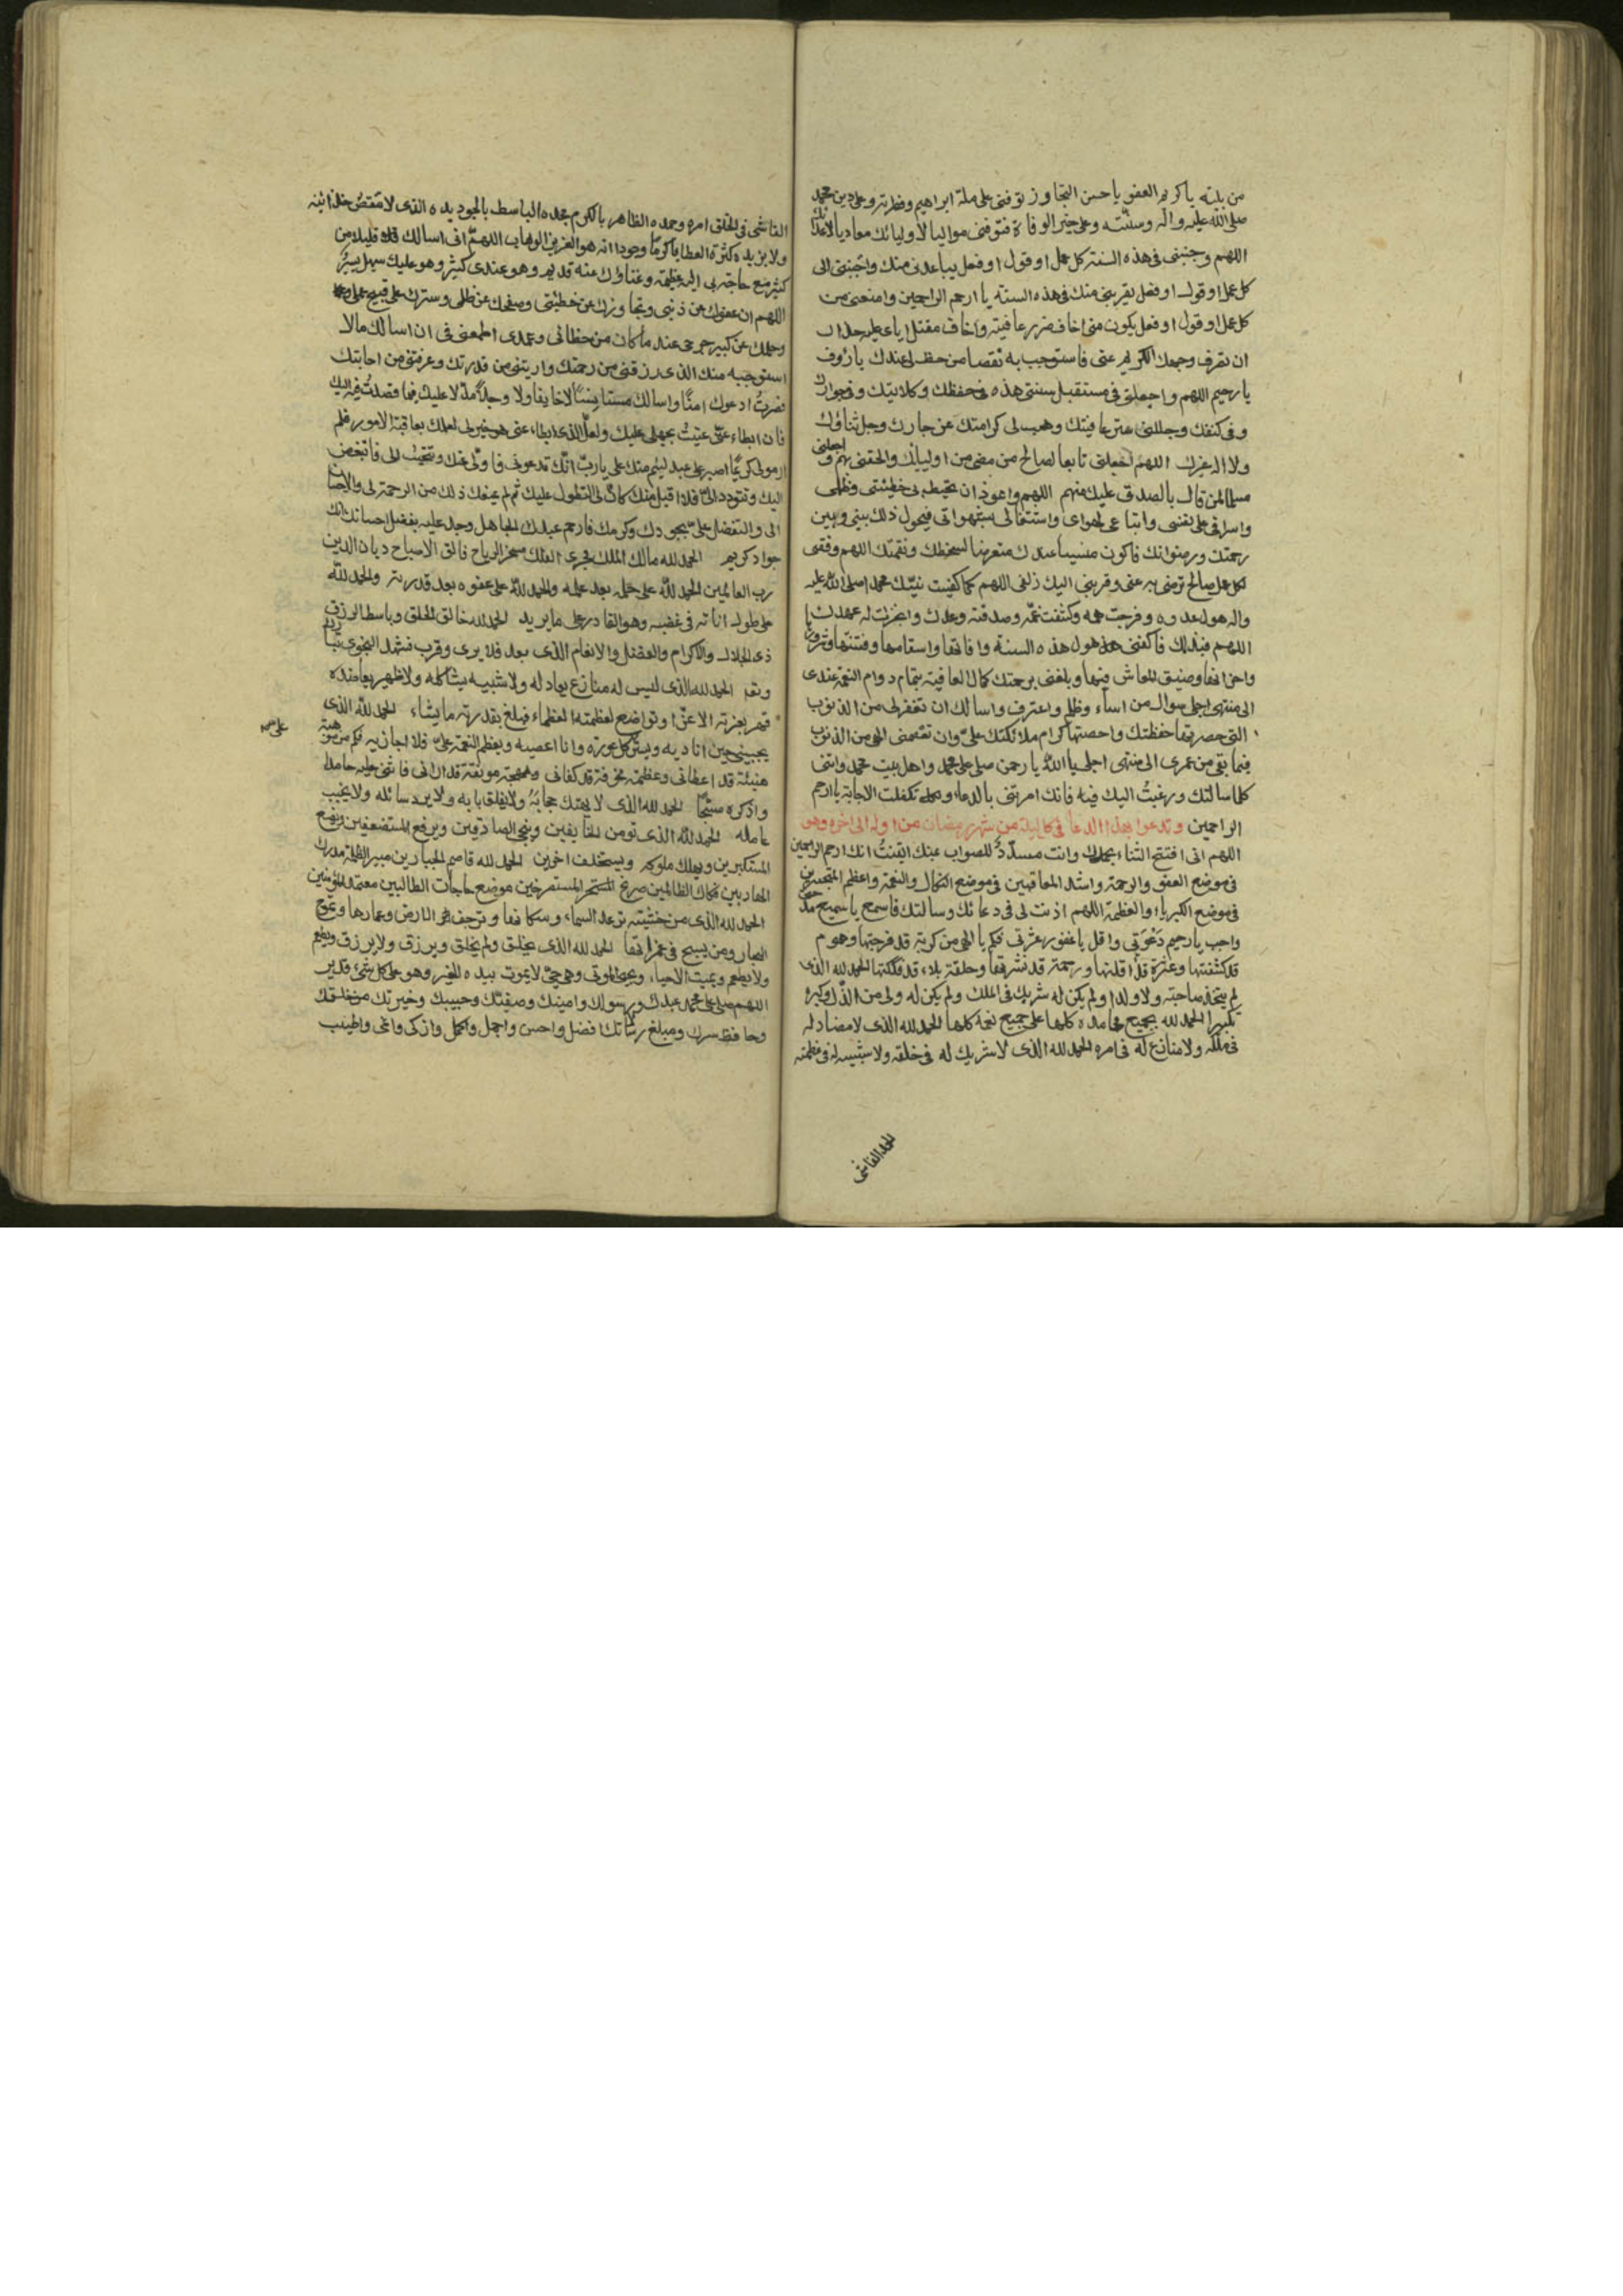 من بليته يا كريم العفو يا حسن التجاوز توفنى على ملة ابراهيم وفطرته وعلى دين محمد
صلى الله عليه واله وسنته وعلى خير الوفاة فتوفنى مواليا لاوليائك معاديا لاعدائك
اللهم وجنبنى فى هذه السنة كل عمل او قول او فعل يباعدنى منك واجتبنى الى
كل عمل او قول او فعل يقربنى منك فى هذه السنة يا ارحم الراحمين وامنعنى من
كل عمل او قول او فعل يكون منى اخاف ضرر عاقبته واخاف مقتك اياى عليه حذار
ان تصرف وجهك الكريم عنى فاستوجب به نقصا من حظ لى عندك يا رؤف
يا رحيم اللهم واجعلنى فى مستقبل سنتى هذه فى حفظك وكلائتك وفى جوارك
وفى كنفك وجللنى ستر عافيتك وهب لى كرامتك عز جارك وجل ثناؤك
ولا اله غيرك اللهم اجعلنى تابعا لصالح من مضى من اوليائك والحقنى بهم واجعلنى
مسلما لمن قال بالصدق عليك منهم اللهم واعوذ ان تحيط بى خطيئتى وظلمى
واسرافى على نفسى واتباعى لهواى واشتغالى بشهواتى فيحول ذلك بينى وبين
رحمتك ورضوانك فاكون منسيا عندك متعرضا لسخطك ونقمتك اللهم وفقنى
لكل عمل صالح ترضى به عنى وقربنى اليك زلفى اللهم كما كفيت نبيك محمدا صلى الله عليه
واله هول عدوه وفرجت همه وكشفت غمه وصدقته وعدك وانجزت له عهدك
اللهم فبذلك فاكفنى هول هذه السنة وافاتها واسقامها وفتنتها وشرورها
واحزانها وضيق المعاش فيها وبلغنى برحمتك كمال العافية بتمام دوام النعمة عندى
الى منتهى اجلى سوال من اساء وظلم واعترف واسالك ان تغفر لى من الذنوب
التى حصرتها حفظتك واحصتها كرام ملائكتك على وان تعصمنى الهى من الذنوب
فيما بقى من عمرى الى منتهى اجلى يا الله يا رحمن صلى على محمد واهل بيت محمد واتنى
كلما سالتك ورغبت اليك فيه فانك امرتنى بالدعاء وتكفلت الاجابة يا ارحم
الراحمين وتدعوا بهذا الدعا فى كل ليلة من شهر رمضان من اوله الى اخره وهو
اللهم انى افتتح الثناء بحمدك وانت مسدد للصواب بمنك ايقنت انك ارحم الراحمين
فى موضع العفو والرحمة واشد المعاقبين فى موضع النكال والنقمة واعظم المتجبرين
فى موضع الكبرياء والعظمة اللهم اذنت لى فى دعائك وسالتك فاسمع يا سميع مدحتى
واجب يا رحيم دعوتى واقل يا غفور عثرتى فكم يا الهى من كربة قد فرجتها وهموم
قد كشفتها وعثرة قد اقلتها ورحمة قد نشرتها وحلقة بلاء قد فككتها الحمد لله الذى
لم يتخذ صاحبة ولا ولدا ولم يكن له شريك فى الملك ولم يكن له ولى من الذل وكبره
تكبيرا الحمد لله بجميع محامده كلها على جميع نعمه كلها الحمد لله الذى لا مضاد له
فى ملكه ولا منازع له فى امره الحمد لله الذى لا شريك له فى خلقه ولا شبيه له فى عظمته
الحمد لله الفاشى
الفاشى فى الخلق امره وحمده الظاهر بالكرم مجده الباسط بالجود يده الذى لا تنقص خزائنه
ولا يزيده كثرة العطايا الا كرما وجودا انه هو العزيز الوهاب اللهم انى اسالك قليلا من
كثير مع حاجة بى اليه عظيمة وغناؤك عنه قديم وهو عندى كثير وهو عليك سهل يسير
اللهم ان عفوك عن ذنبى وتجاوزك عن خطيئتى وصفحك عن ظلمى وسترك على قبيح عملى
وحلمك عن كبير جرمى عند ما كان من خطائى وعمدى اطمعنى فى ان اسالك مالا
استوجبه منك الذى رزقتنى من رحمتك واريتنى من قدرتك وعرفتنى من اجابتك
فصرت ادعوك امنا واسالك مستانسا لا خايفا ولا وجلا مدلا عليك فيما قصدت فيه اليك
فان ابطاء عنى عتبت بجهلى عليك ولعل الذى ابطاء عنى هو خير لى لعلمك بعاقبة الامور فلم
ار مولى كريما اصبر على عبد لئيم منك على يا رب انك تدعونى فاولى عنك وتتحبب الى فاتبغض
اليك وتتودد الى فلا اقبل منك كان لى التطول عليك ثم لم يمنعك ذلك من الرحمة لى والاحسان
الى والتفضل على بجودك وكرمك فارحم عبدك الجاهل وجد عليه بفضل احسانك انك
جواد كريم الحمد لله مالك الملك مجرى الفلك مسخر الرياح فالق الاصباح ديان الدين
رب العالمين الحمد لله على حلمه بعد علمه والحمد لله على عفوه بعد قدرته والحمد لله
على طول اناته فى غضبه وهو القادر على ما يريد الحمد لله خالق الخلق وباسط الرزق
ذى الجلال والاكرام والفضل والانعام الذى بعد فلا يرى وقرب فشهد النجوى تبارك
وتعالى الحمد لله الذى ليس له منازع يعادله ولا شبيه يشاكله ولا ظهير يعاضده
قهر بعزته الاعزاء وتواضع لعظمته العظماء فبلغ بقدرته ما يشاء الحمد لله الذى
يجيبنى حين اناديه ويستر كل عورة وانا اعصيه ويعظم النعمة على فلا اجازيه فكم من موهبة
هنيئة قد اعطانى وعظيمة مخوفة قد كفانى وبهجة مونقة قد ارانى فاثنى عليه حامدا
واذكره مسبحا الحمد لله الذى لا يهتك حجابه ولا يغلق بابه ولا يرد سائله ولا يخيب
عامله الحمد لله الذى يؤمن الخايفين وينجى الصادقين ويرفع المستضعفين ويضع
المستكبرين ويهلك ملوكا ويستخلف اخرين الحمد لله قاصم الجبارين مبير الظلمة مدرك
الهاربين نكال الظالمين صريخ المستصرخين موضع حاجات الطالبين معتمد المؤمنين
الحمد لله الذى من خشيته ترعد السماء وسكانها وترجف الارض وعمارها وتموج
البحار ومن يسبح فى غمراتها الحمد لله الذى يخلق ولم يخلق ويرزق ولا يرزق ويطعم
ولا يطعم ويميت الاحياء ويحيى الموتى وهو حى لا يموت بيده الخير وهو على كل شئ قدير
اللهم صل على محمد عبدك ورسولك وامينك وصفيك وحبيبك وخيرتك من خلقك
وحافظ سرك ومبلغ رسالاتك افضل واحسن واجمل واكمل وازكى وانمى واطيب